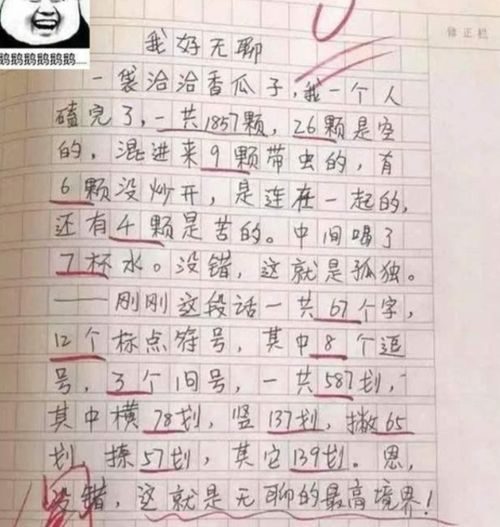 鹅鹅鹅鹅鹅鹅....
修正栏
我好无聊
一袋洽洽香瓜子,我一个人
磕完了,一共1857颗,26颗是空
的,混进来9颗带虫的,有
6颗没炒开,是连在一起的,
还有4颗是苦的。中间喝了
7杯水。没错,这就是孤独。
——刚刚这段话一共67个字,
12个标点符号,其中8个逗
号,3个问号,一共587划,
其中横78划,竖137划,撇65
划 捺57划,其它139划。恩,
没错,这就是无聊的最高境界!